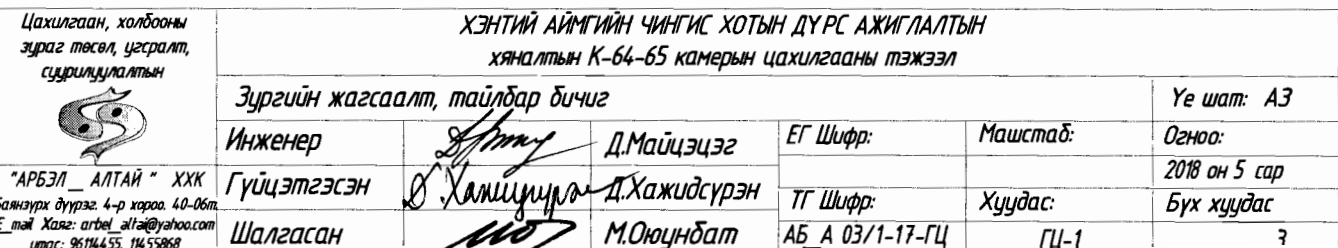 Цахилгаан, холбооны
зураг төсөл, угсралт,
суурилуулалтын
"АРБЭЛ__АЛТАЙ" ХХК
Баянзүрх дүүрэг. 4-р хороо. 40-06т.
E_mail Хаяг: arbel_altai@yahoo.com
утас: 96114455, 11455868
ХЭНТИЙ АЙМГИЙН ЧИНГИС ХОТЫН ДҮРС АЖИГЛАЛТЫН
хяналтын К-64-65 камерын цахилгааны тэжээл
Зургийн жагсаалт, тайлбар бичиг
Үе шат: А3
Инженер
Д.Майцэцэг
ЕГ Шифр:
Машстаб:
Огноо:
2018 он 5 сар
Гүйцэтгэсэн
Д.Хажидсүрэн
Д.Хажидсүрэн
ТГ Шифр:
Хуудас:
Бүх хуудас
Шалгасан
М.Оюунбат
АБ_А 03/1-17-ГЦ
ГЦ-1
3